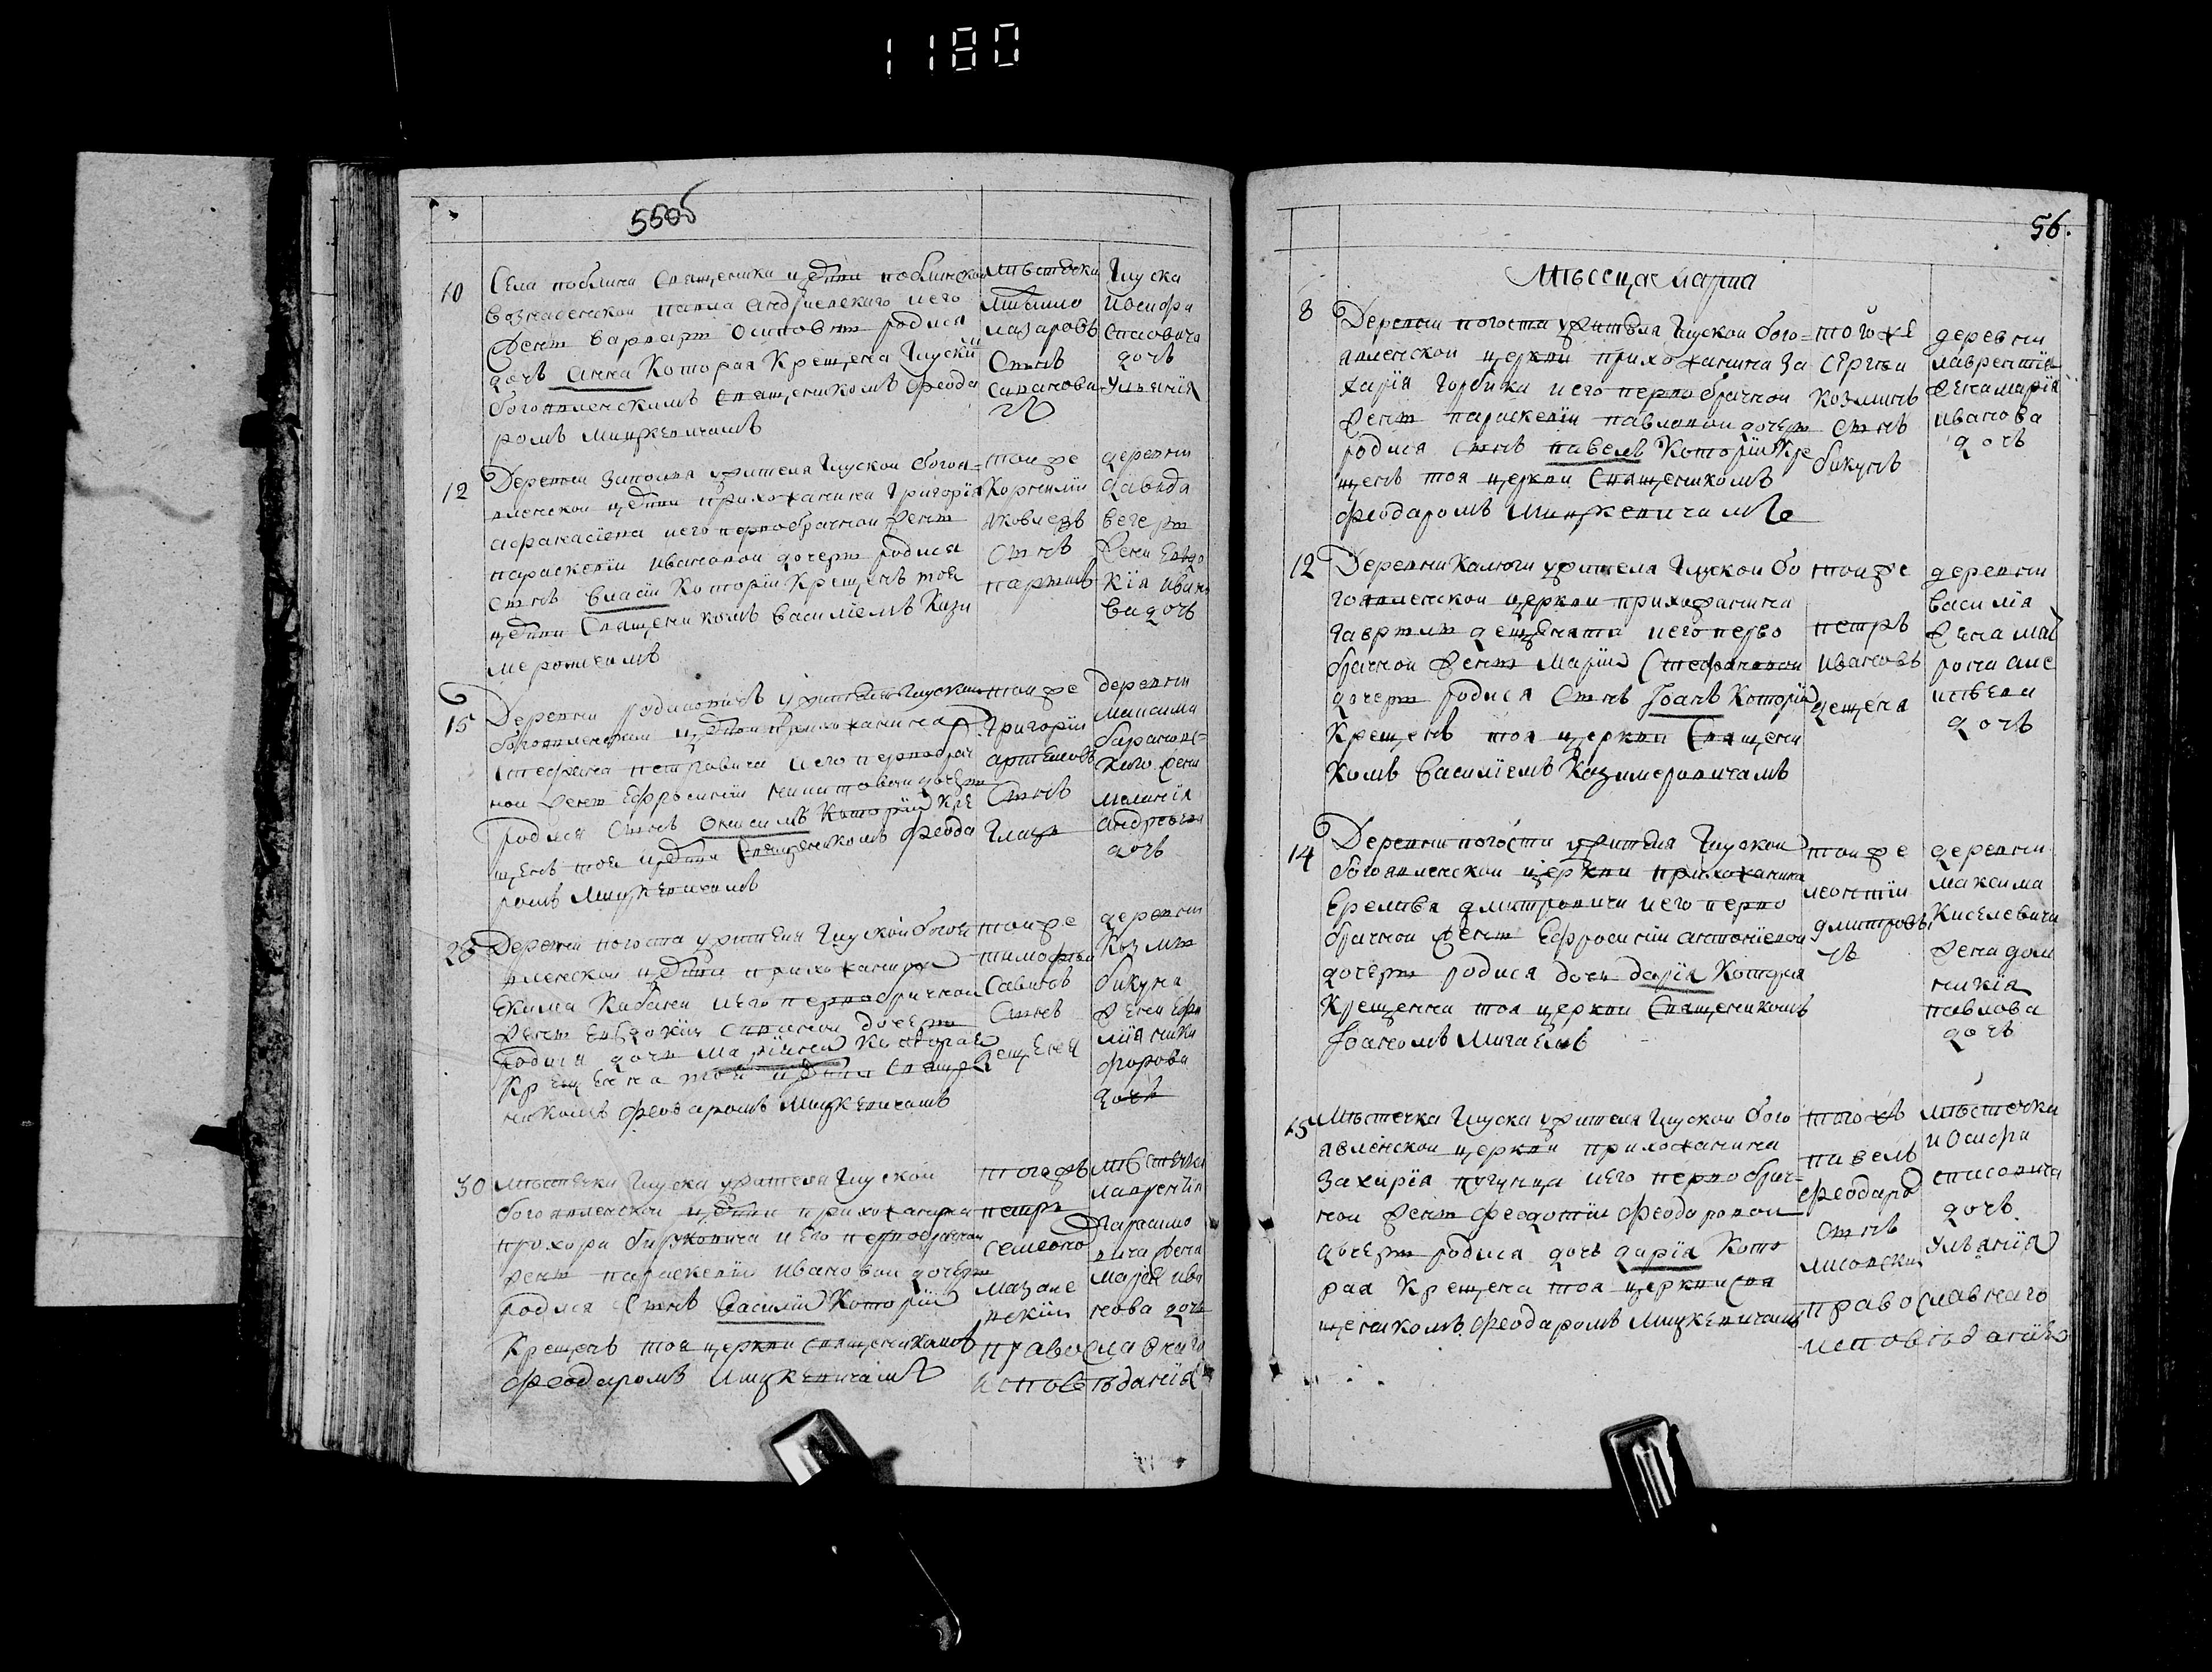 1180
55об
10
Села поблина Священика цркви поблинской
вознасенской павла андриевскаго иего
жены варвары Осиповны родися
дочь анна Которая Крещена Глускїй
богоявленскимъ Священикомъ Феода
ромъ Мицкевичамъ
мѣстечка
лазаровъ
Сынъ
Глуска
Иосифа
Спасовича
дочь
Ульянїя
12
Деревни заполья жителя Глускои богоя
вленской цркви прихожанина Григорїя
афанасїева иего первобрачной жены
параскевїи ивановой дочеры родися
Сынъ власїи Которїи Крещенъ тоя
цркви Священикомъ василїемъ Кази
меровичемъ
тоиже
Корнилїи
яковлевъ
Сынъ
деревни
давида
жена Евдо
кїя ивано
ва дочь
15
Деревни жителя Глускои
богоявленской цркви прихожанина
Стефана петровича иего первобрач
ной жены Ефросинїи дочеры
родися Сынъ Онисимъ Которїи Кре
щенъ тоя цркви Священикомъ Феода
ромъ Мицкевичамъ
тоиже
Григорїи
артемовъ
Сынъ
деревни
Максима
баранов-
скаго жена
маланїя
андреева
дочь
28
Деревни погоста жителя Глускои богоя
вленской цркви прихожанина
Екима Кабана иего первобрачной
жены Евдокїи Савиной дочеры
родися дочь Которая
Крещенна тоя цркви Священ
никомъ Феодаромъ Мицкевичамъ
тоиже
тимофеи
Савиновъ
Сынъ
дещеня
деревни
Козмы
бикуна
жена Ефи
мїя ники
форова
дочь
30
мѣстечка Глуска жителя Глускои
богоявленской цркви прихожанина
прохора иего первобрачной
жены параскевїи ивановой дочеры
родися Сынъ Василїи Которїи
Крещенъ тоя церкви священикомъ
Феодаромъ Мицкевичамъ
тогожъ
петръ
семеоно
мазале
вскїи
мѣстечка
лаврентїя
Гарасимо
вича жена
марея ива
нова дочь
православнаго
исповѣданїя
56.
Мѣсеца марта
8
Деревни погоста жителя Глускои бого=
явленской церкви прихожанина За
харїя Горбика иего первобрачной
жены параскевїи павловои дочеры
родися Сынъ павелъ Которїи Кре
щенъ тоя церкви Священикомъ
Феодаромъ Мицкевичамъ
тогоже
Сергеи
Козминъ
Сынъ
бикунъ
деревни
лаврентїя
жена марїя
иванова
дочь
12
Деревни Калюги жителя Глускои бо
гоявленской церкви прихожанина
гаврылы дещеняти иего перво
брачной жены Марїи Стефановои
дочеры родися Сынъ Іоанъ Которїи
Крещенъ тоя церкви Священи
комъ Василїемъ Казимеровичамъ
тоиже
петръ
ивановъ
дещеня
деревни
василїя
жена мат
рона
дочь
14
Деревни погоста жителя Глускои
богоявленской церкви прихожанина
Еремѣя дмитровича иего перво
брачной жены Ефросинїи антонїевои
дочеры родися дочь дарїя Которая
Крещенна тоя церкви Священикомъ
Іоаномъ Мигаемъ
тоиже
леонтїи
дмитрови
чъ
деревни
максима
Киселевича
жена дом
никїя
павлова
дочь
15
Мѣстечка Глуска жителя Глускои бого
явленской церкви прихожанина
Захарїя пугунца иего первобрач-
ной жены Феодотїи Феодаровои
дочеры родися дочь дарїя Кото
рая Крещена тоя церкви свя
щеникомъ Феодаромъ Мицкевичамъ
тогожъ
павелъ
Феодаро
Сынъ
лисовски
мѣстечка
иОсифа
спасовича
дочь
Ульянїя
православнаго
исповѣданїя